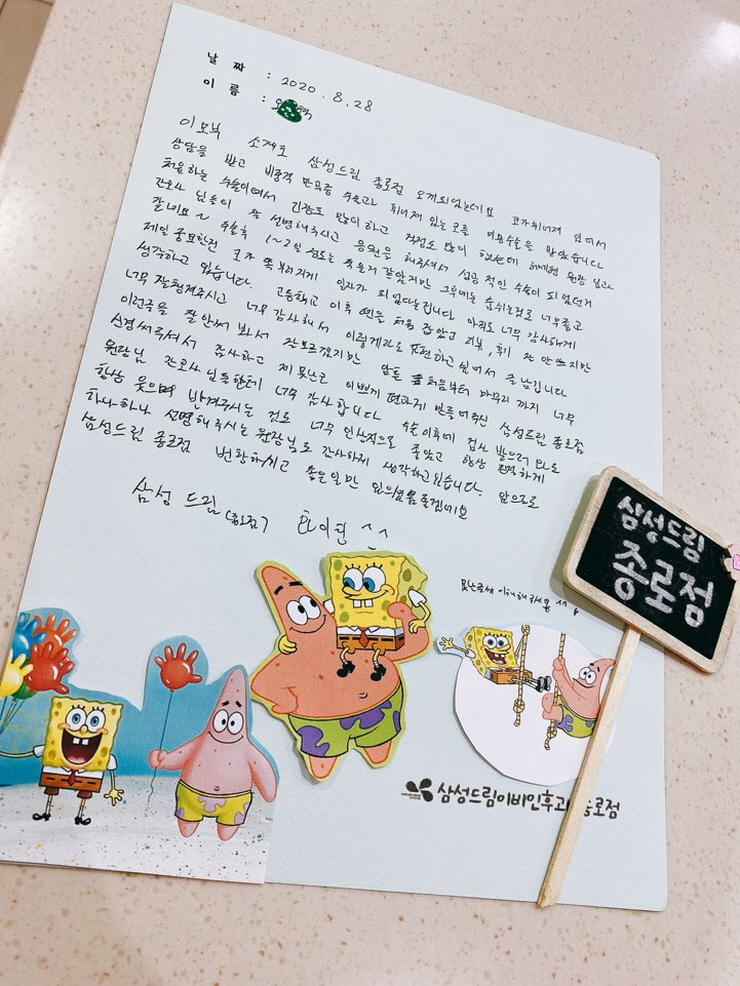 날 짜 : 2020. 8. 28
이 름 :
이모부 소개로 삼성드림 종로점 오게되었는데요 코가휘어져 있어서
상담을 받고 비중격 만곡증 수술과 휘어져 있는 코를 미용수술을 받았습니다
처음하는 수술이여서 긴장도 많이하고 걱정도 많이 했는데 원장 님과
간호사 님들이 잘 설명해주시고 응원을 해주셔서 성공 적인 수술이 되었던거
같네요~ 수술후 1~2일 정도는 죽을거 같았지만 그후에는 숨쉬는것도 너무좋고
제일 중요한건 코가 똑 부러지게 일자가 되었다는겁니다 아직도 너무 감사하게
생각하고 있습니다. 고등학교 이후 펜을 처음 잡았고 리뷰, 후기 잘 안쓰지만
너무 잘챙겨주시고 너무 감사해서 이렇게라도 표현하고 싶어서 줄 남깁니다
이런글을 잘 안써 봐서 잘모르겠지만 암튼 처음부터 마무리 까지 너무
신경써주셔서 감사하고 제 못난코 이쁘게 편하게 만들어주신 삼성드림 종로점
원장님 간호사 님들한테 너무 감사합니다 수술이후에 검사 받으러 와도
항상 웃으며 반겨주시는 것도 너무 인상적으로 좋았고 항상 친절하게
하나하나 설명해주시는 원장님도 감사하게 생각하고있습니다. 앞으로도
삼성드림 종로점 번창하시고 좋은일만 있으셨음 좋겠네요
삼성 드림 (종로점) 화이팅 ^^
못난글씨 이해해주세용 ^^
삼성드림
종로점
삼성드림이비인후과 종로점